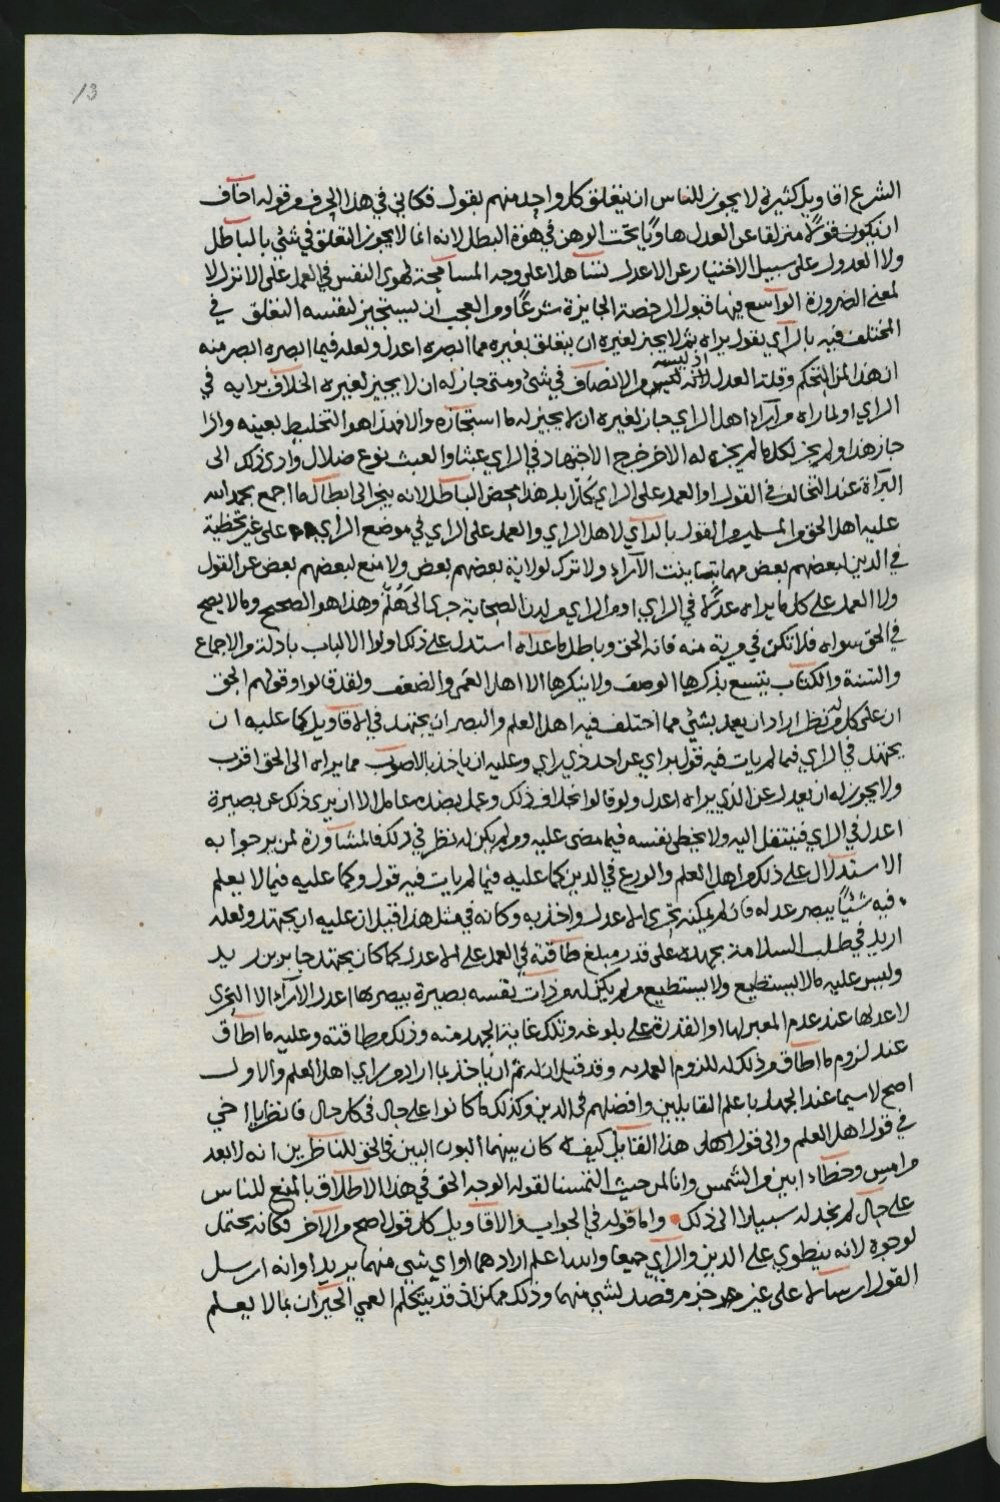 13
الشرع اقاويل كثيرة لا يجوز للناس ان يتعلق كل واحد منهم بقول فكاني في هذا الحرف من قوله اخاف
ان يكون قولا منزلقا عن العدل هاويا تحت الوهن في هوة البطل لانه انما لا يجوز التعلق في شئ بالباطل
ولا العدول على سبيل الاختيار عن الاعدل تساهلا على وجه المسامحة لهوى النفس في العمل على الانزل لا
لمعنى الضرورة الواسع فيها قبول الرخصة الجايزة شرعا ومن العجب أن يستجيز لنفسه التعلق في
المختلف فيه بالرأي بقول يراه ثم لا يجيز لغيره ان يتعلق بغيره مما ابصره اعدل ولعله فيما ابصره ابصر منه
ان هذا لمن التحكم وقلة العدل اذ ليس من الانصاف في شئ ومتى جاز له ان لا يجيز لغيره الخلاف برايه في
الراي او لما راه من آراء اهل الراي جاز لغيره ان لا يجيز له ما استجازه والا فهذا هو التخليط بعينه واذا
جاز هذا ولم يجز لكل ما لم يجزه له الاخر خرج الاجتهاد في الراي عبثا والعبث نوع ضلال وادى ذلك الى
البراءة عند التخالف في القول او العمل على الراي كلا بل هذا محض الباطل لانه ينجر الى ابطال ما اجمع بحمد الله
عليه اهل الحق من المسلمين من القول بالرأي لاهل الراي والعمل على الراي في موضع الرأي على غير تخطئة
في الدين لبعضهم بعض مهما تباينت الآراء ولا ترك لولاية بعضهم بعض ولا منع لبعضهم بعض عن القول
ولا العمل على كل ما يراه عدلا في الراي او من الراي من لدن الصحابة جرى الى هلم وهذا هو الصحيح وما لا يصح
في الحق سواه فلا تكن في مرية منه فانه الحق وباطل ما عداه استدل على ذلك اولوا الالباب بادلة من الاجماع
والسنة والكتاب يتسع بذكرها الوصف ولا ينكرها الا اهل العمى والضعف ولقد قالوا وقولهم الحق
ان على كل من له نظر اراد ان يعمل بشئ مما اختلف فيه اهل العلم والبصر ان يجتهد في الاقاويل كما عليه ان
يجتهد في الراي فيما لم يات فيه قول براي عن احد ذي راي وعليه ان ياخذ بالاصوب مما يراه الى الحق اقرب
ولا يجوز له ان يعدل عن الذي يراه اعدل ولو قالوا بخلاف ذلك وعمل بضده عامل الا ان يرى ذلك عن بصيرة
اعدل في الراي فينتقل اليه ولا يخطي نفسه فيما مضى عليه ومن لم يكن له نظر في ذلك فالمشاورة لمن يرجوا به
الاستدلال على ذلك من اهل العلم والورع في الدين كما عليه فيما لم يات فيه قول وكما عليه فيما لا يعلم
فيه شئياً يبصر عدله فان لم يمكنه تحرى الاعدل واخذ به وكانه في مثل هذا قيل ان عليه ان يجتهد ولعله
اريد في طلب السلامة بجهده على قدر مبلغ طاقته في العمل على الاعدل كما كان يجتهد جابر بن زيد
وليس عليه ما لا يستطيع ولا يستطيع من لم يكن له من ذات نفسه بصيرة يبصر بها اعدل الآراء الا التحرى
لاعدلها عند عدم المعبر لها او القدرة على بلوغه وتلك غاية الجهد منه وذلك من طاقته وعليه ما اطاق
عند لزوم ما اطاق من ذلك له للزوم العمل به وقد قيل ان له ثم ان ياخذ بما اراد من راي اهل العلم والاول
اصح لا سيما عند الجهل باعلم القايلين وافضلهم في الدين وكذلك ما كانوا على حال في كل حال فانظر يا اخي
في قول اهل العلم والى قول اهل هذا القايل كيف كان بينهما البون البين في الحق للناظرين انه لابعد
من امس وخطاه ابين من الشمس وانا لمن حيث التمسنا لقوله الوجه الحق في هذا الاطلاق بالمنع للناس
على حال لم نجد له سبيلا الى ذلك واما قوله في الجواب من الاقاويل كل قول اصح من الاخر فكانه يحتمل
لوجوه لانه ينطوي على الدين والراي جميعا والله اعلم ارادهما او اي شي منهما يريد او انه ارسل
القول ارسالا على غير حزم قصد لشي منهما وذلك ممكن اذ قد يتكلم العمي الحيران بما لا يعلم